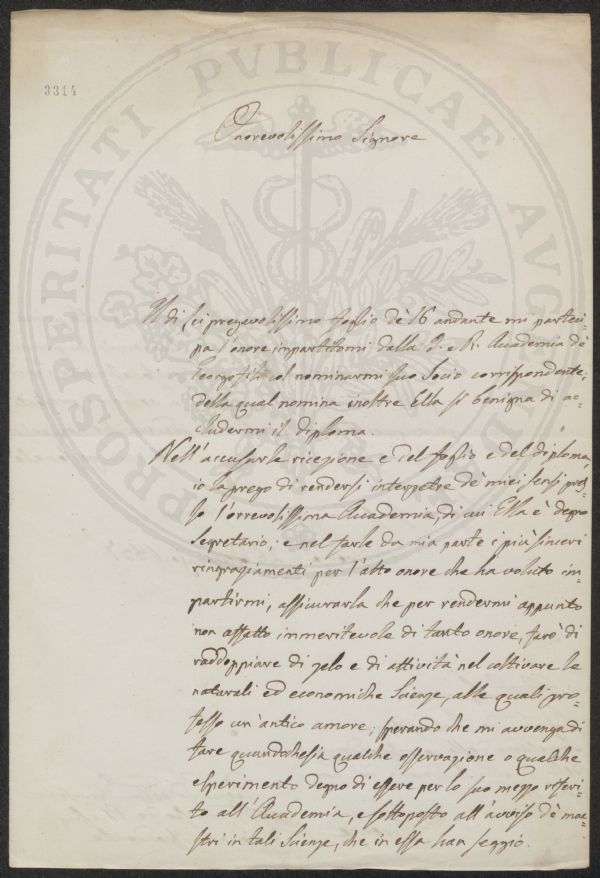 3314
PROSPERITATI PVBLICAE AVGENDAE
Onorevolissimo Signore
Il di Lei pregevolissimo foglio de' 16 andante mi parteci=
pa l'onore impartitomi dalla I. e R. Accademia de'
Georgofili col nominarmi suo Socio corrispondente;
della qual nomina inoltre Ella si benigna di ac=
cludermi il diploma.
Nell'accusarle ricezione e del foglio e del diploma,
io La prego di rendersi interpetre de' miei sensi pres=
so l'orrevolissima Accademia, di cui Ella è degno
Segretario; e nel farle da mia parte i più sinceri
ringraziamenti per l'alto onore che ha voluto im=
partirmi, assicurarla che per rendermi appunto
non affatto immeritevole di tanto onore, farò di
raddoppiare di zelo e di attività nel coltivare le
naturali ed economiche Scienze, alle quali pro=
fesso un'antico amore; sperando che mi avvenga di
fare quandochesia qualche osservazione o qualche
esperimento degno di essere per lo suo mezzo riferi=
to all'Accademia, e sottoposto all'avviso de' mae=
stri in tali Scienze, che in essa han seggio.